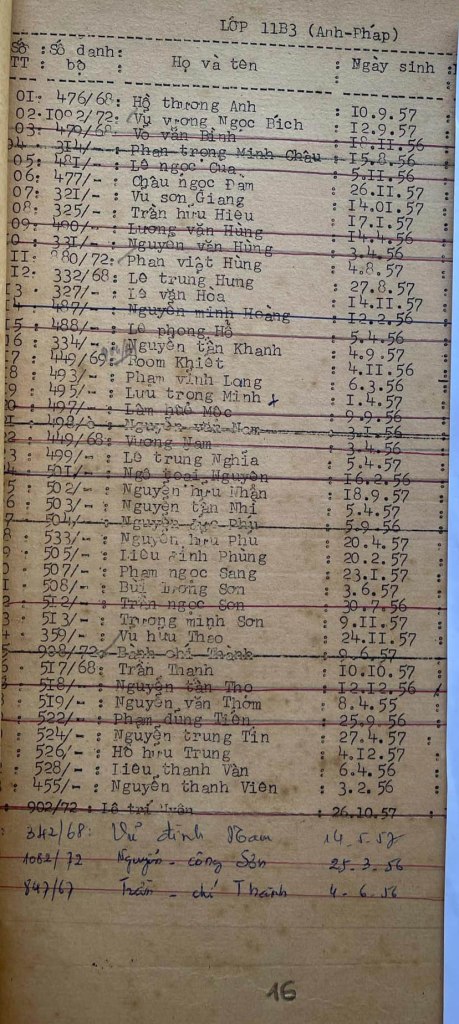 LỚP 11B3 (Anh-Pháp)
Số TT : Số danh bộ : Họ và tên : Ngày sinh
01: 476/68: Hồ thượng Anh : 10.9.57
02: 1002/72: Vụ vương Ngọc Bích : 12.9.57
03: 479/68 Võ văn Bình : 18.11.56
04 314/- Phan trọng Minh Châu : 15.8.56
05: 481/- Lê ngọc Của : 5.11.56
06: 477/- Châu ngọc Đảm : 26.11.57
07: 321/- Vũ sơn Giang : 14.01.57
08: 325/- Trần hữu Hiệu : 17.1.57
09: 480/- Lương văn Hùng : 14.4.56
331/- Nguyễn văn Hùng : 3.4.56
880/72: Phan việt Hùng : 4.8.57
12: 332/68: Lê trung Hưng : 27.8.57
3 327/- : Lê văn Hoa : 14.11.57
487/- Nguyễn minh Hoàng : 12.2.56
5 : 488/- : Lê phong Hồ : 5.4.56
6 : 334/- Nguyễn tấn Khanh : 4.9.57
7 : 449/69: Poom Khiết : 4.11.56
8 : 493/- : Phạm vĩnh Long : 6.3.56
9 : 495/- : Lưu trọng Minh : 1.4.57
497/- : Lâm huê Mộc : 9.9.56
498/- Nguyễn văn Nam : 3.1.56
2 : 449/68: Vương Nam : 3.4.56
3 : 499/- : Lê trung Nghĩa : 5.4.57
501/- Ngô Nguyên : 16.2.56
5 : 502/- Nguyễn hữu Nhận : 18.9.57
6 : 503/- : Nguyễn tấn Nhi : 5.4.57
7 504/- Nguyễn Phú : 5.9.56
8 : 533/- : Nguyễn hữu Phú : 20.4.57
9 : 505/- : Liêu Phùng : 20.2.57
507/- : Phạm ngọc Sang : 23.1.57
508/- : Bùi Sơn : 3.6.57
2 : 512/- : Trần ngọc Sơn : 30.7.56
3 : 513/- : Trương minh Sơn : 9.11.57
359/- : Vũ hữu Thạo : 24.11.57
5 908/72: chí Thành : 9.6.57
6 : 517/68: Trần Thanh : 10.10.57
: 518/- : Nguyễn tấn Thọ : 12.12.56
: 519/- : Nguyễn văn Thơm : 8.4.55
: 522/- : Phạm dũng Tiến : 25.9.56
: 524/- : Nguyễn trung Tín : 27.4.57 :
: 526/- : Hồ hữu Trung : 4.12.57
: 528/- : Liêu thanh Vân : 6.4.56
: 455/- : Nguyễn thanh Viên : 3.2.56
: 902/72 : Lê trí : 26.10.57
: 342/68: Vũ đình Nam 14.5.57
1062/72 Nguyễn - công Sơn 25.3.56
847/67 Trần - chí Thành 4.6.56
16